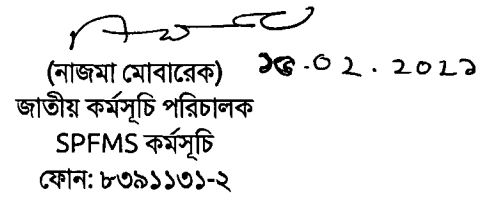 (নাজমা মোবারেক)
১৫.০২.২০২১
জাতীয় কর্মসূচি পরিচালক
SPFMS কর্মসূচি
ফোন: ৮৩৯১১৩১-২